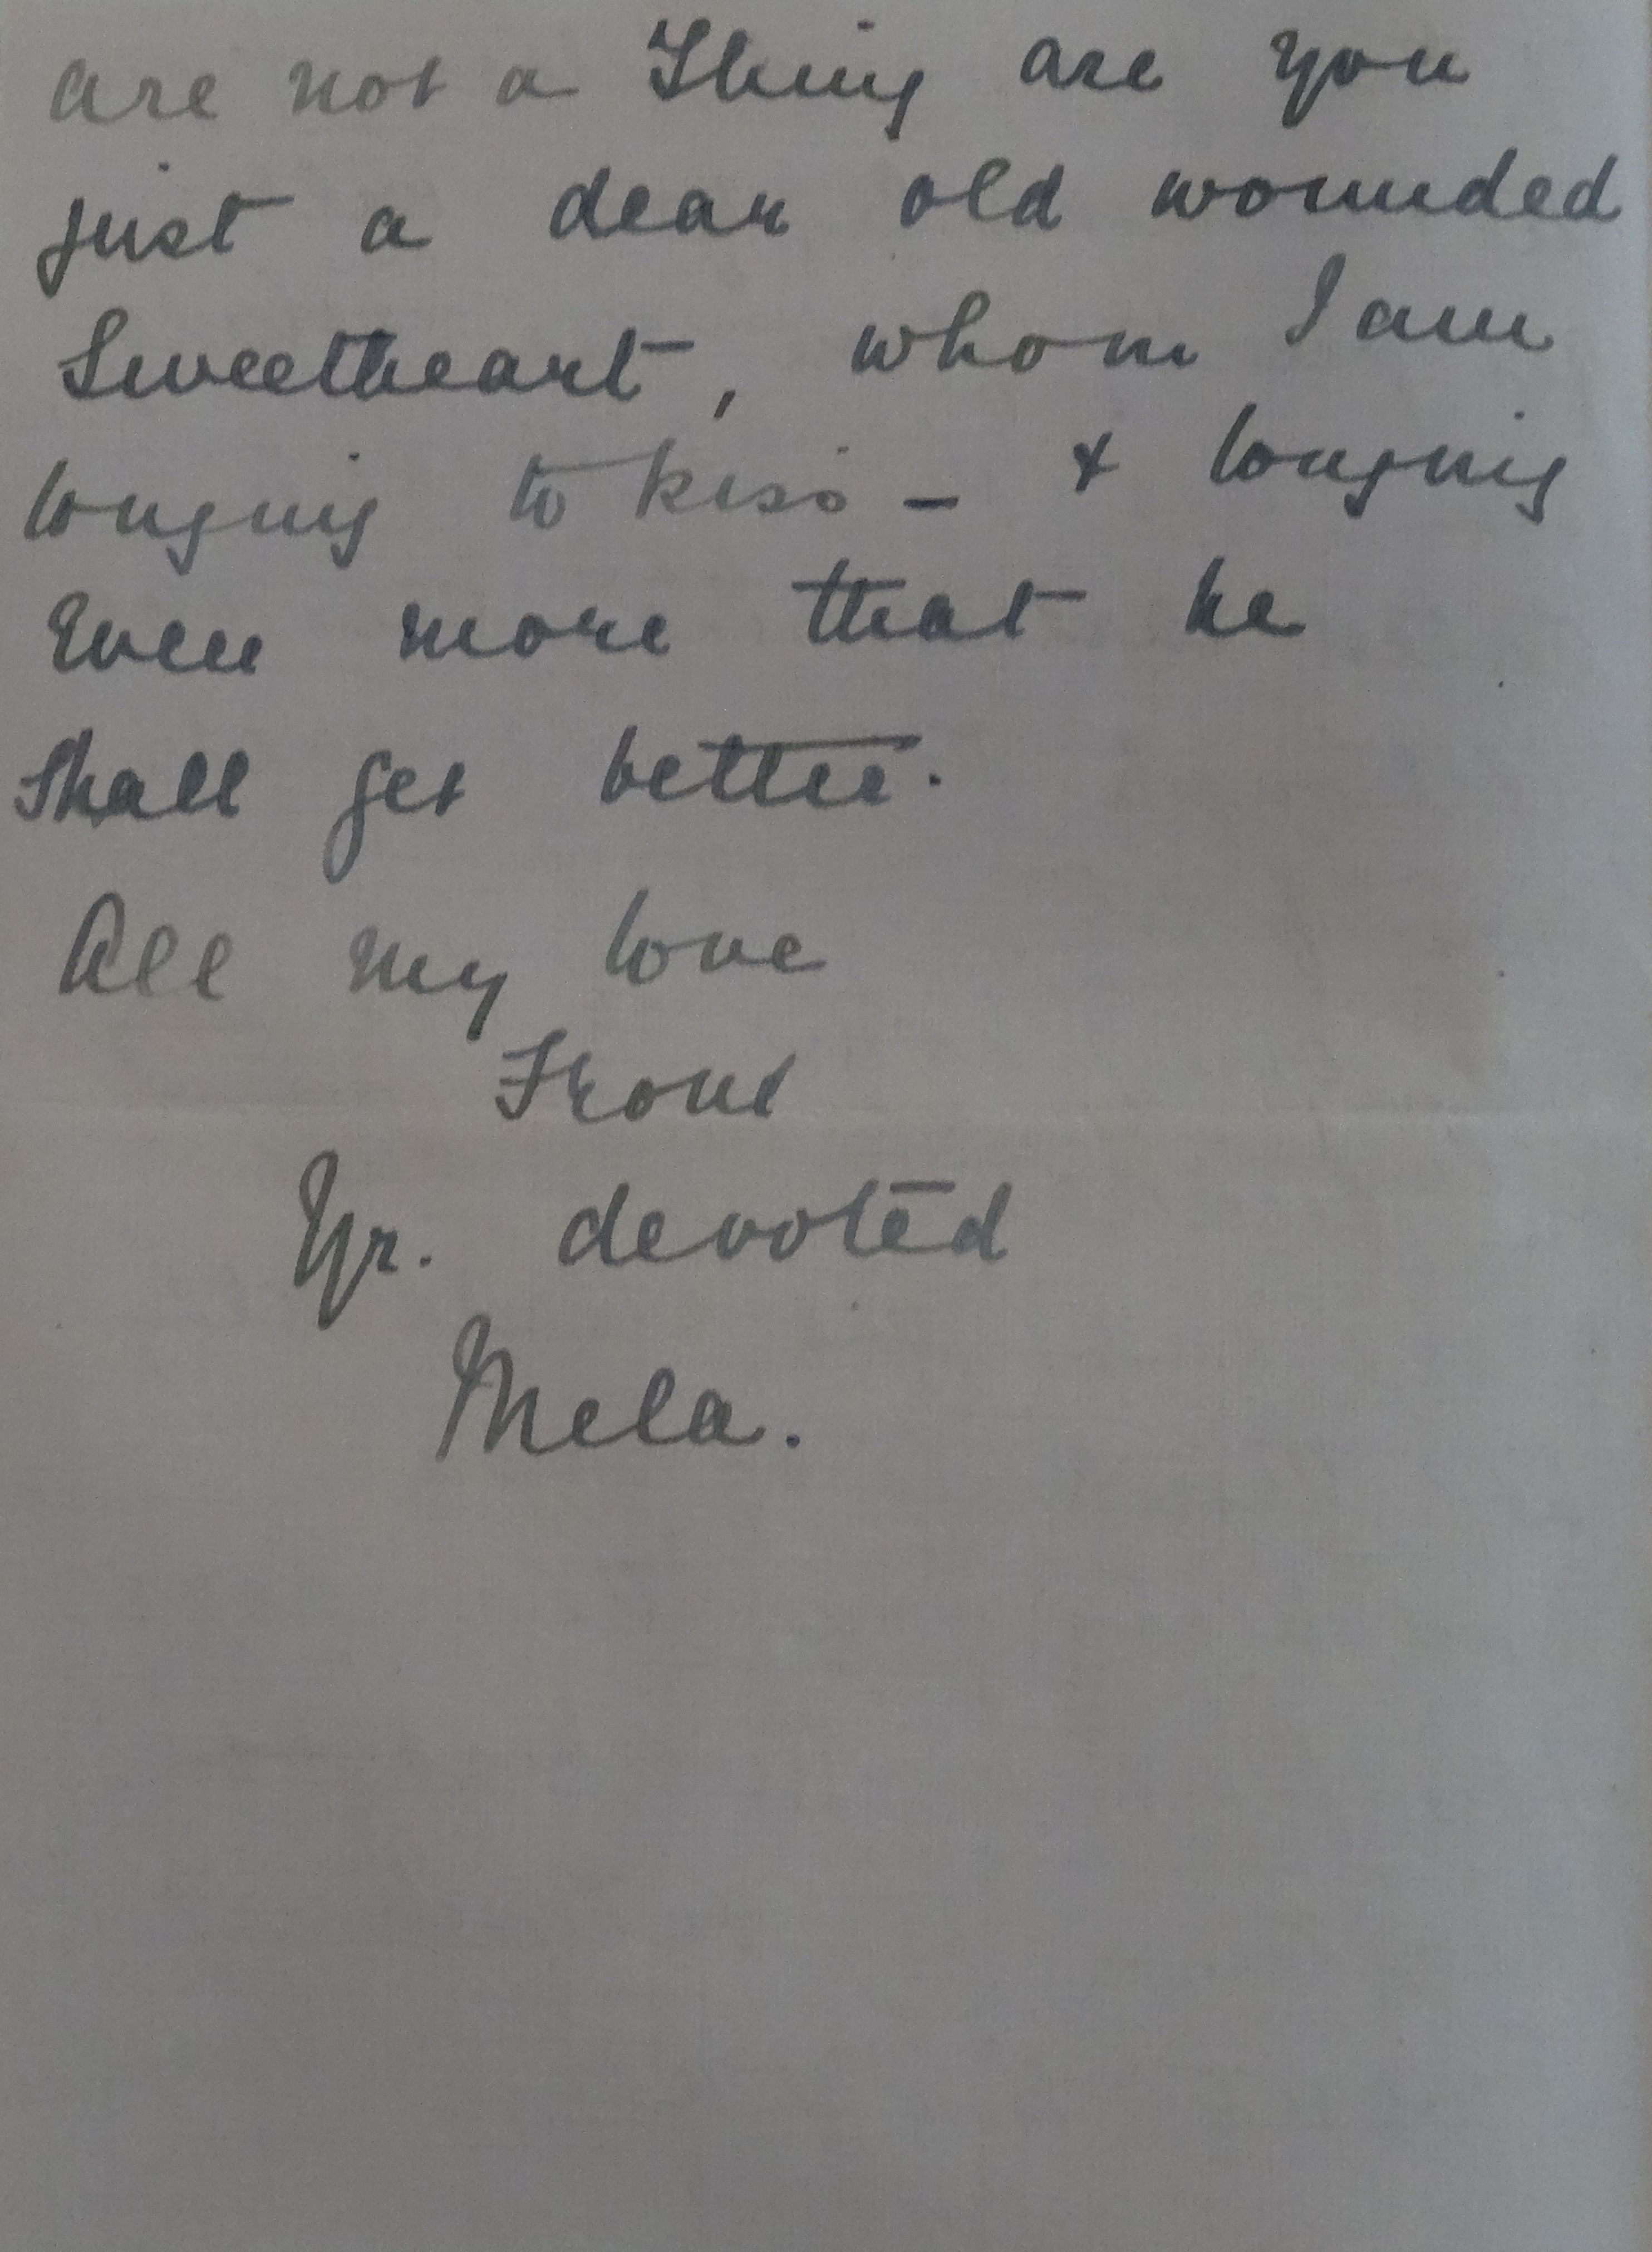 are not a Thing are you
just a dear old wounded
Sweetheart, whom I am
longing to kiss - & longing
Even more that he
Shall get better.
All my love
From
Yr. devoted
Mela.